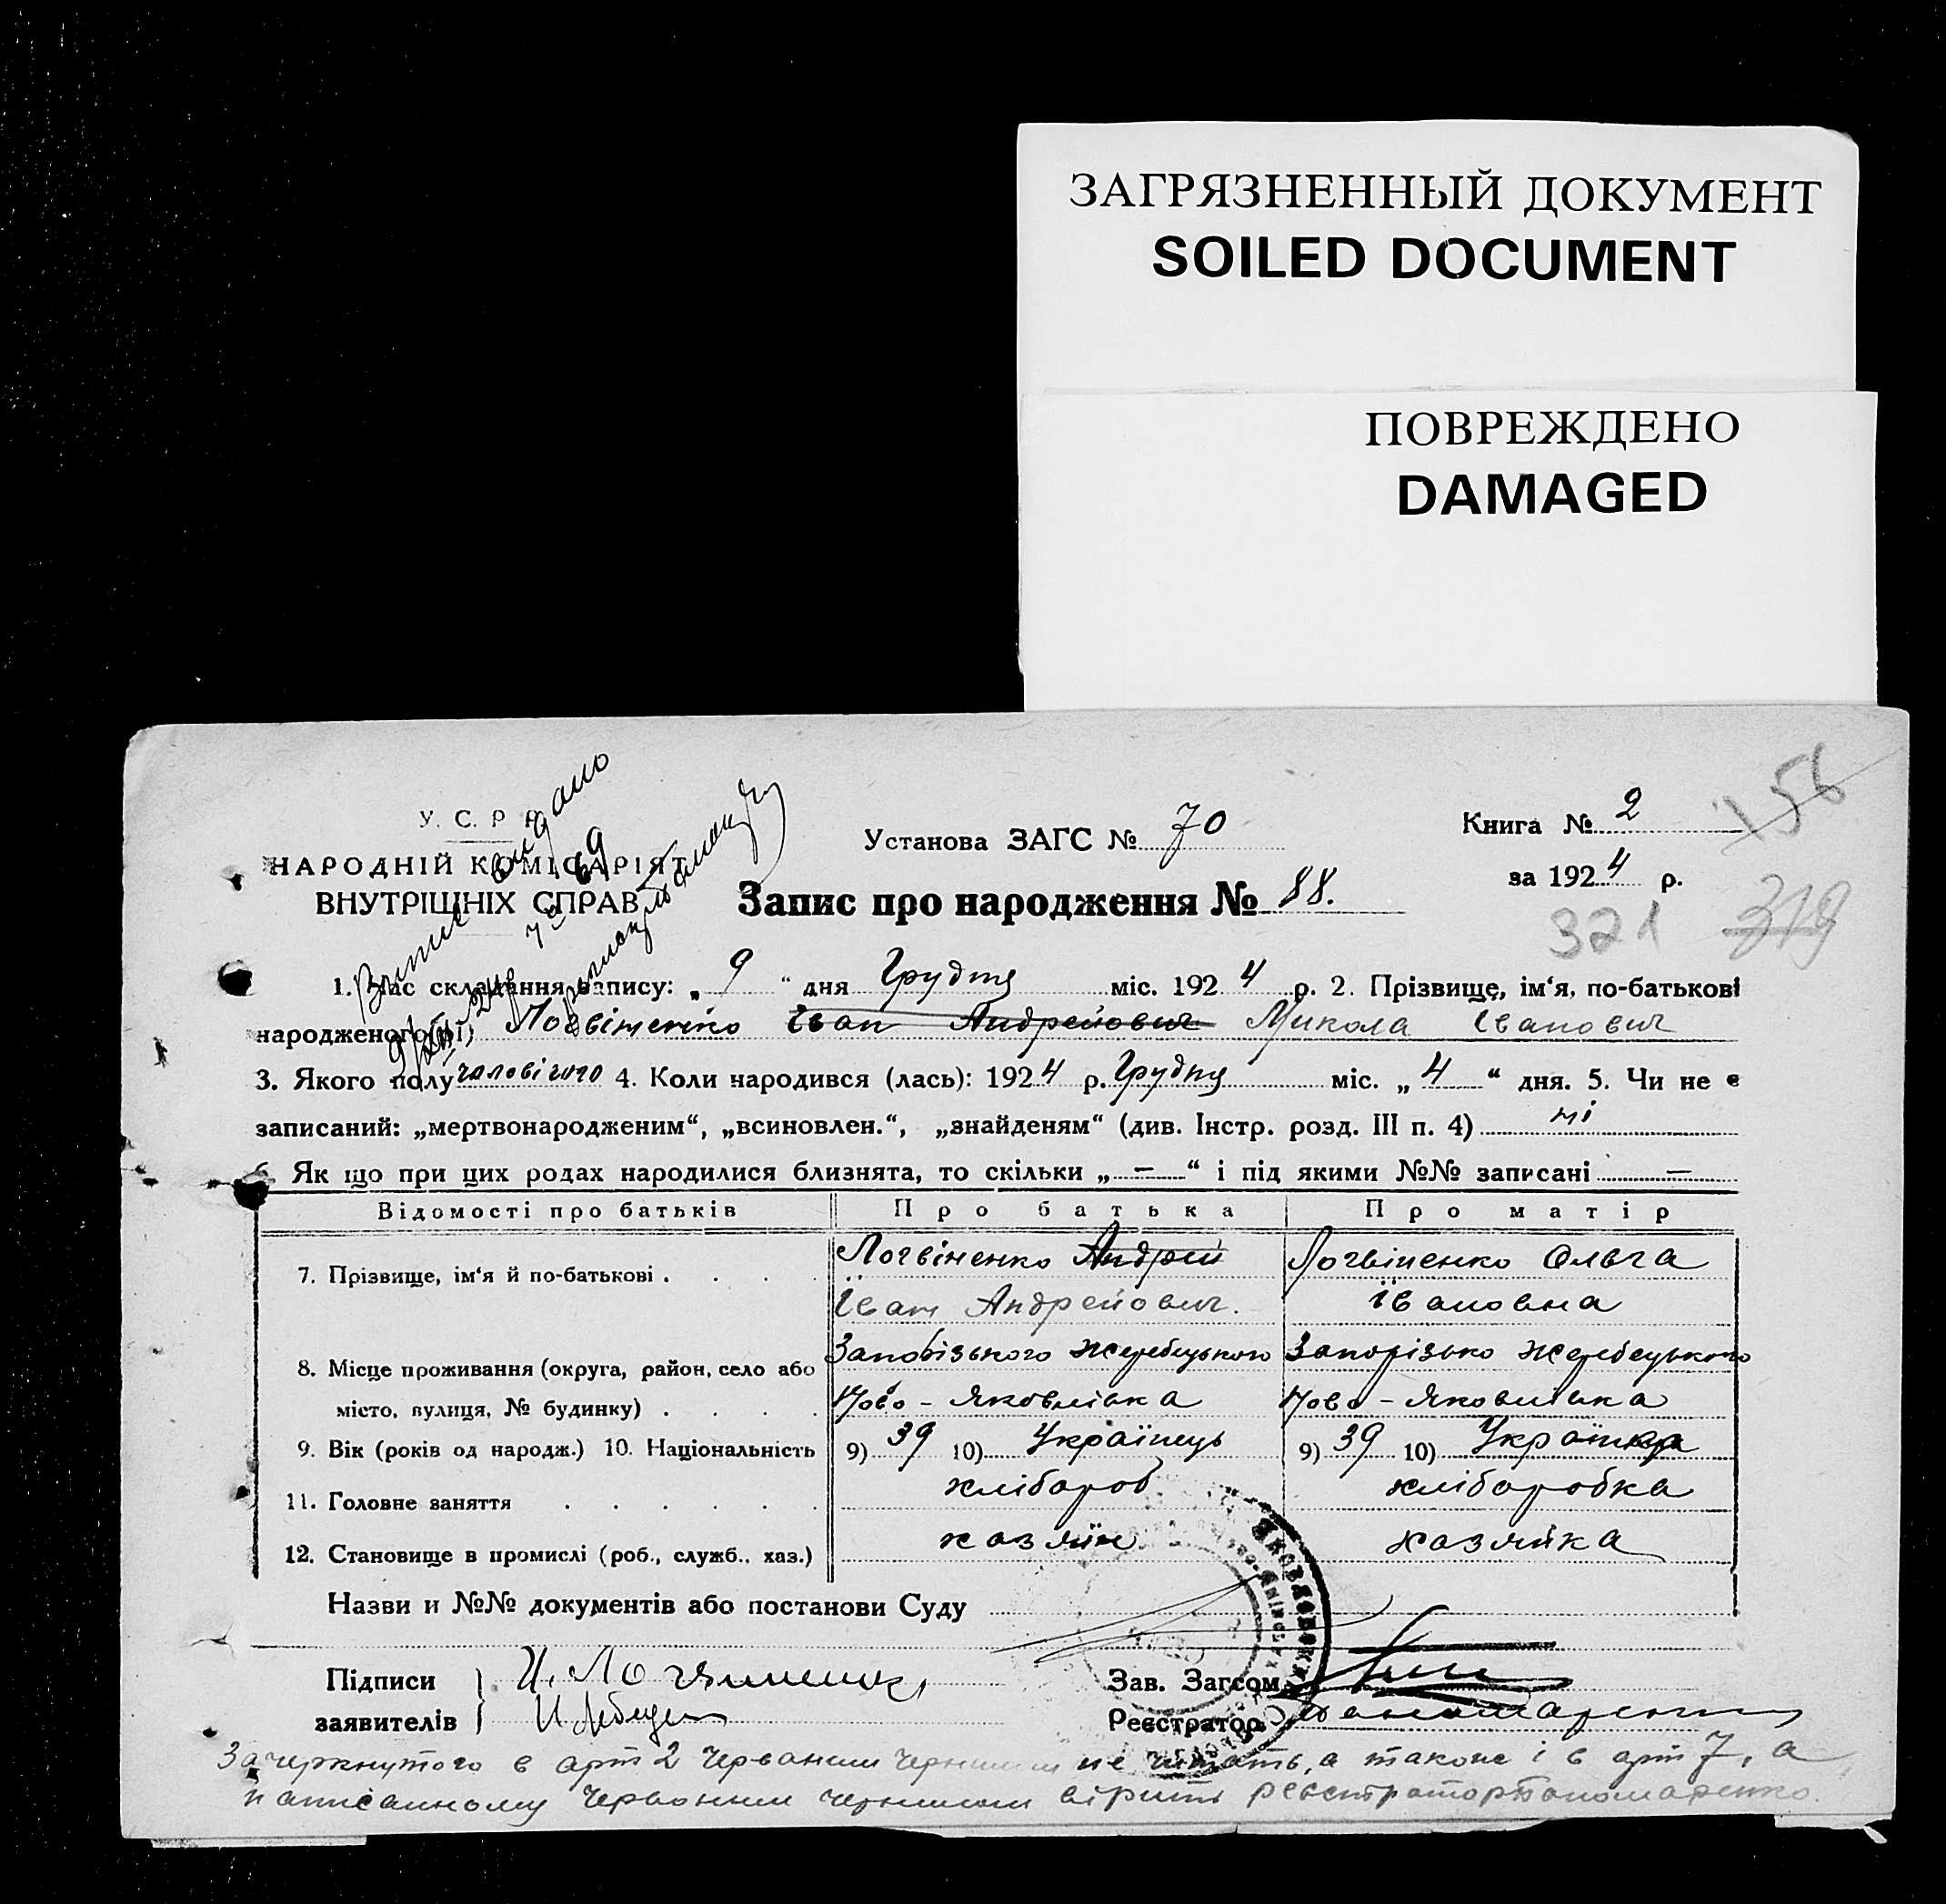 ЗАГРЯЗНЕННЫЙ ДОКУМЕНТ
SOILED DOCUMENT
ПОВРЕЖДЕНО
DAMAGED
156
У. С. Р. Р.
НАРОДНІЙ КОМІСАРІЯТ
ВНУТРІШНІХ СПРАВ
видано
Установа ЗАГС № 70
Книга № 2
за 1924 р.
Запис про народження № 88.
321 319
1. Час складання запису: „ 9 “ дня Грудня міс. 1924 р. 2. Прізвище, ім‘я, по-батькові
народженого(ої) Логвіненко Іван Андрейович Микола Іванович
3. Якого полу чоловічого 4. Коли народився (лась): 1924 р. Грудня міс. „ 4 “ дня. 5. Чи не є
записаний: „мертвонародженим“, „всиновлен.“, „знайденям“ (див. Інстр. розд. III п. 4) ні
6 Як що при цих родах народилися близнята, то скільки „ — “ і під якими №№ записані —
Відомості про батьків Про батька Про матір
7. Прізвище, ім‘я й по-батькові . Логвіненко Андрей Логвіненко Ольга
Іван Андрейович. Івановна
8. Місце проживання (округа, район, село або Запорізького Жеребецького Запорізько Жеребецького
місто, вулиця, № будинку) . Ново - Яковлівка Ново - Яковлівка
9. Вік (років од народж.) 10. Національність 9) 39 10) Українець 9) 39 10) Українка
11. Головне заняття хлібороб хліборобка
12. Становище в промислі (роб., служб., хаз.) хазяїн хазяйка
Назви и №№ документів або постанови Суду
Підписи
заявителів
Зав. Загсом
Реєстратор Пономаренко
Зачеркнутого в арт 2 червоним чернилом не читать, а також і в арт 7, а
написанному червоним чернилом вірить реєстратор Пономаренко.